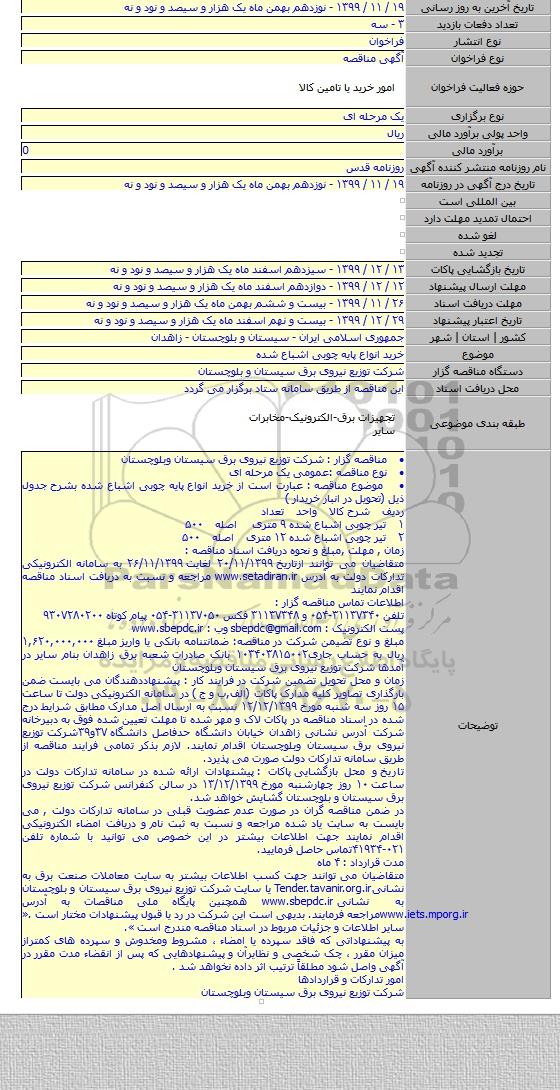 تاریخ آخرین به روز رسانی ۱۹ / ۱۱ / ۱۳۹۹ - نوزدهم بهمن ماه یک هزار و سیصد و نود و نه
تعداد دفعات بازدید ۳ - سه
نوع انتشار فراخوان
نوع فراخوان آگهی مناقصه
حوزه فعالیت فراخوان امور خرید یا تامین کالا
نوع برگزاری یک مرحله ای
واحد پولی برآورد مالی ریال
برآورد مالی 0
نام روزنامه منتشر کننده آگهی روزنامه قدس
تاریخ درج آگهی در روزنامه ۱۹ / ۱۱ / ۱۳۹۹ - نوزدهم بهمن ماه یک هزار و سیصد و نود و نه
بین المللی است
احتمال تمدید مهلت دارد
لغو شده
تجدید شده
تاریخ بازگشایی پاکات ۱۳ / ۱۲ / ۱۳۹۹ - سیزدهم اسفند ماه یک هزار و سیصد و نود و نه
مهلت ارسال پیشنهاد ۱۲ / ۱۲ / ۱۳۹۹ - دوازدهم اسفند ماه یک هزار و سیصد و نود و نه
مهلت دریافت اسناد ۲۶ / ۱۱ / ۱۳۹۹ - بیست و ششم بهمن ماه یک هزار و سیصد و نود و نه
تاریخ اعتبار پیشنهاد ۲۹ / ۱۲ / ۱۳۹۹ - بیست و نهم اسفند ماه یک هزار و سیصد و نود و نه
کشور | استان | شهر جمهوری اسلامی ایران - سیستان و بلوچستان - زاهدان
موضوع خرید انواع پایه چوبی اشباع شده
دستگاه مناقصه گزار شرکت توزیع نیروی برق سیستان و بلوچستان
محل دریافت اسناد این مناقصه از طریق سامانه ستاد برگزار می گردد
طبقه بندی موضوعی تجهیزات برق-الکترونیک-مخابرات
سایر
توضیحات
• مناقصه گزار : شرکت توزیع نیروی برق سیستان وبلوچستان
• نوع مناقصه :عمومی یک مرحله ای
• موضوع مناقصه : عبارت است از خرید انواع پایه چوبی اشباع شده بشرح جدول
ذیل (تحویل در انبار خریدار )
ردیف شرح کالا واحد تعداد
۱ تیر چوبی اشباع شده ۹ متری اصله ۵۰۰
۲ تیر چوبی اشباع شده ۱۲ متری اصله ۵۰۰
زمان , مهلت ,مبلغ و نحوه دریافت اسناد مناقصه :
متقاضیان می توانند ازتاریخ ۲۰/۱۱/۱۳۹۹ لغایت ۲۶/۱۱/۱۳۹۹ به سامانه الکترونیکی
تدارکات دولت به آدرس www.setadiran.ir مراجعه و نسبت به دریافت اسناد مناقصه
اقدام نمایند
اطلاعات تماس مناقصه گزار :
تلفن ۳۱۱۳۷۳۴۰-۰۵۴ و ۳۱۱۳۷۳۴۸ فکس ۳۱۱۳۷۰۵۰-۰۵۴ پیام کوتاه ۹۳۰۷۲۸۰۲۰۰
پست الکترونیک : sbepdc@gmail.com وب : www.sbepdc.ir
مبلغ و نوع تضمین شرکت در مناقصه: ضمانتنامه بانکی یا واریز مبلغ ۱,۶۲۰,۰۰۰,۰۰۰
ریال به حساب جاری۰۱۰۳۴۰۳۸۱۵۰۰۲ بانک صادرات شعبه برق زاهدان بنام سایر در
آمدها شرکت توزیع نیروی برق سیستان وبلوچستان
زمان و محل تحویل تضمین شرکت در فرایند کار : پیشنهاددهندگان می بایست ضمن
بارگذاری تصاویر کلیه مدارک پاکات (الف,ب و ج ) در سامانه الکترونیکی دولت تا ساعت
۱۵ روز سه شنبه مورخ ۱۲/۱۲/۱۳۹۹ نسبت به ارسال اصل مدارک مطابق شرایط درج
شده در اسناد مناقصه در پاکات لاک و مهر شده تا مهلت تعیین شده فوق به دبیرخانه
شرکت آدرس نشانی زاهدان خیابان دانشگاه حدفاصل دانشگاه ۳۷و۳۹شرکت توزیع
نیروی برق سیستان وبلوچستان اقدام نمایند. لازم بذکر تمامی فرایند مناقصه از
طریق سامانه تدارکات دولت صورت می پذیرد.
تاریخ و محل بازگشایی پاکات : پیشنهادات ارائه شده در سامانه تدارکات دولت در
ساعت ۱۰ روز چهارشنبه مورخ ۱۳/۱۲/۱۳۹۹ در سالن کنفرانس شرکت توزیع نیروی
برق سیستان و بلوچستان گشایش خواهد شد.
در ضمن مناقصه گران در صورت عدم عضویت قبلی در سامانه تدارکات دولت , می
بایست به سایت یاد شده مراجعه و نسبت به ثبت نام و دریافت امضاء الکترونیکی
اقدام نمایند جهت اطلاعات بیشتر در این خصوص می توانید با شماره تلفن
۰۲۱-۴۱۹۳۴تماس حاصل فرمایید.
مدت قرارداد : ۴ ماه
متقاضیان می توانند جهت کسب اطلاعات بیشتر به سایت معاملات صنعت برق به
نشانیTender.tavanir.org.ir یا سایت شرکت توزیع نیروی برق سیستان و بلوچستان
به نشانی www.sbepdc.ir همچنین پایگاه ملی مناقصات به آدرس
www.iets.mporg.irمراجعه فرمایند. بدیهی است این شرکت در رد یا قبول پیشنهادات مختار است .«
سایر اطلاعات و جزئیات مربوط در اسناد مناقصه مندرج است ».
به پیشنهاداتی که فاقد سپرده یا امضاء ، مشروط ومخدوش و سپرده های کمتراز
میزان مقرر ، چک شخصی و نظایرآن و پیشنهادهایی که پس از انقضاء مدت مقرر در
آگهی واصل شود مطلقاً ترتیب اثر داده نخواهد شد .
امور تدارکات و قراردادها
شرکت توزیع نیروی برق سیستان وبلوچستان
ParsNamadData